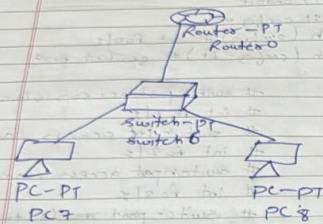 Router-PT
Router0
Switch-PT
Switch6
PC-PT
PC7
PC-PT
PC8